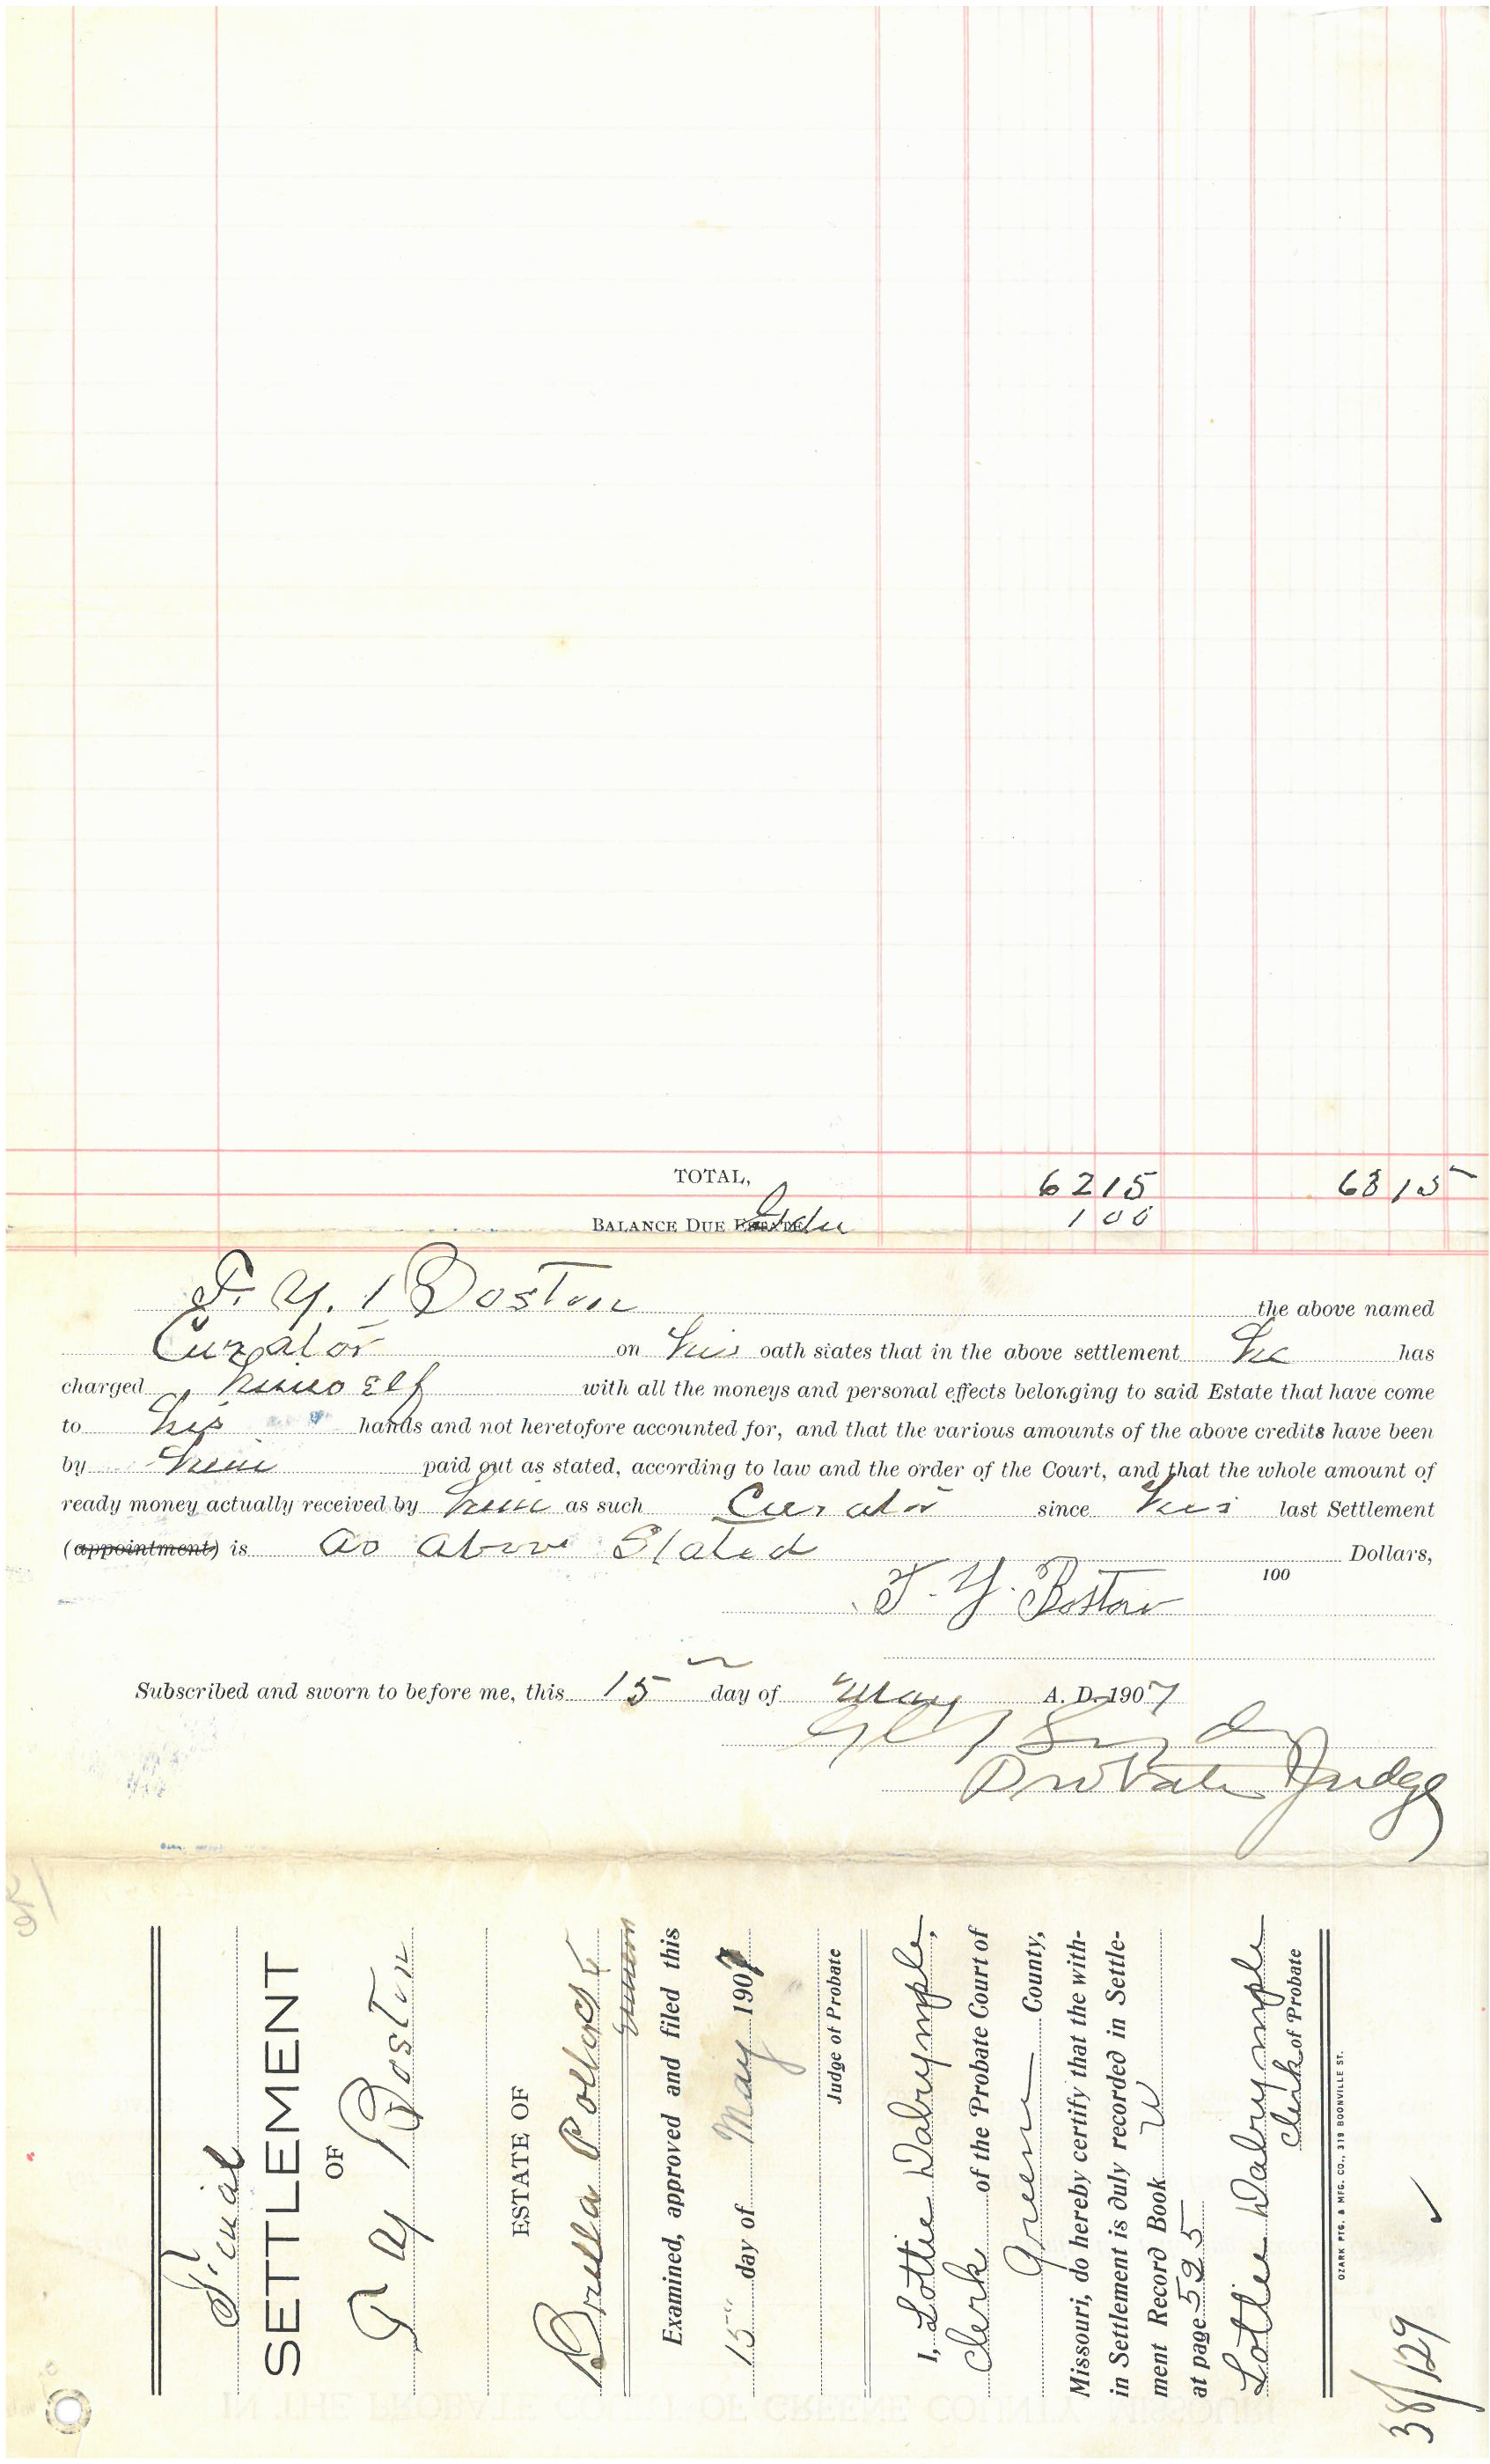 TOTAL, 6215 6315
BALANCE DUE
100
T. Y. Boston the above named
Curator on his oath states that in the above settlement he has
charged himself with all the moneys and personal effects belonging to said Estate that have come
to his hands and not heretofore accounted for, and that the various amounts of the above credits have been
by him paid out as stated, according to law and the order of the Court, and that the whole amount of
ready money actually received by him as such Curator since his last Settlement
(appointment) is as above Stated Dollars,
100
T. Y. Boston
Subscribed and sworn to before me, this 15 day of May A. D. 1907
Probate Judge
Final
SETTLEMENT
OF
T Y Boston
ESTATE OF
Examined, approved and filed this
15" day of May 1907
Judge of Probate
I, Lottie Dalrymple,
Clerk of the Probate Court of
Greene County,
Missouri, do hereby certify that the with-
in Settlement is duly recorded in Settle-
ment Record Book W
at page 525
Lottie Dalrymple
Clerk of Probate
OZARK PTG. & MFG. CO., 319 BOONVILLE ST.
38/129
IN THE PROBATE COURT OF GREENE COUNTY, MISSOURI